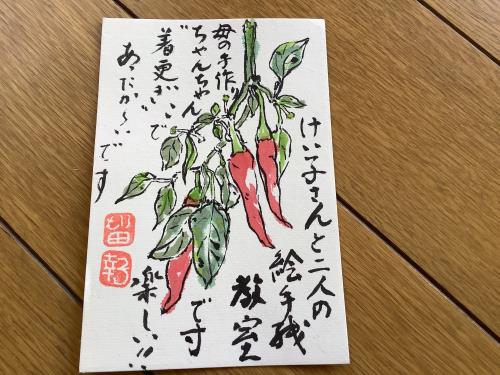 けい子さんと二人の
絵手紙
教室
です
楽しい!!
母の手作り
"ちゃんちゃん
です
あったか〜いです